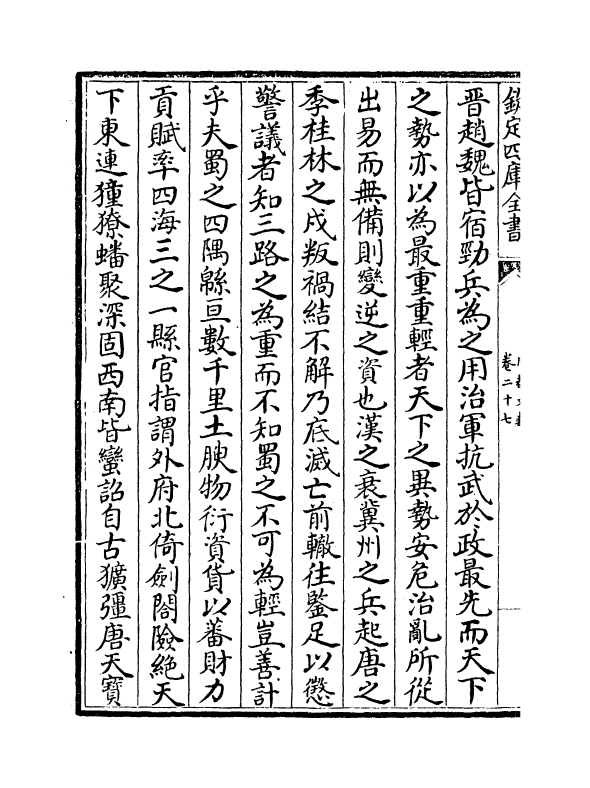 欽定四庫全書
卷二十七
晉趙魏皆宿勁兵為之用治軍抗武於政最先而天下
之勢亦以為最重重輕者天下之異勢安危治亂所從
出易而無備則變逆之資也漢之衰冀州之兵起唐之
季桂林之戍叛禍結不解乃底滅亡前轍往鑒足以懲
警議者知三路之為重而不知蜀之不可為輕豈善計
乎夫蜀之四隅緜亘數千里土腴物衍資貨以蕃財力
貢賦率四海三之一縣官指謂外府北倚劍閣險絶天
下東連獞獠蟠聚深固西南皆蠻詔自古獷彊唐天寶